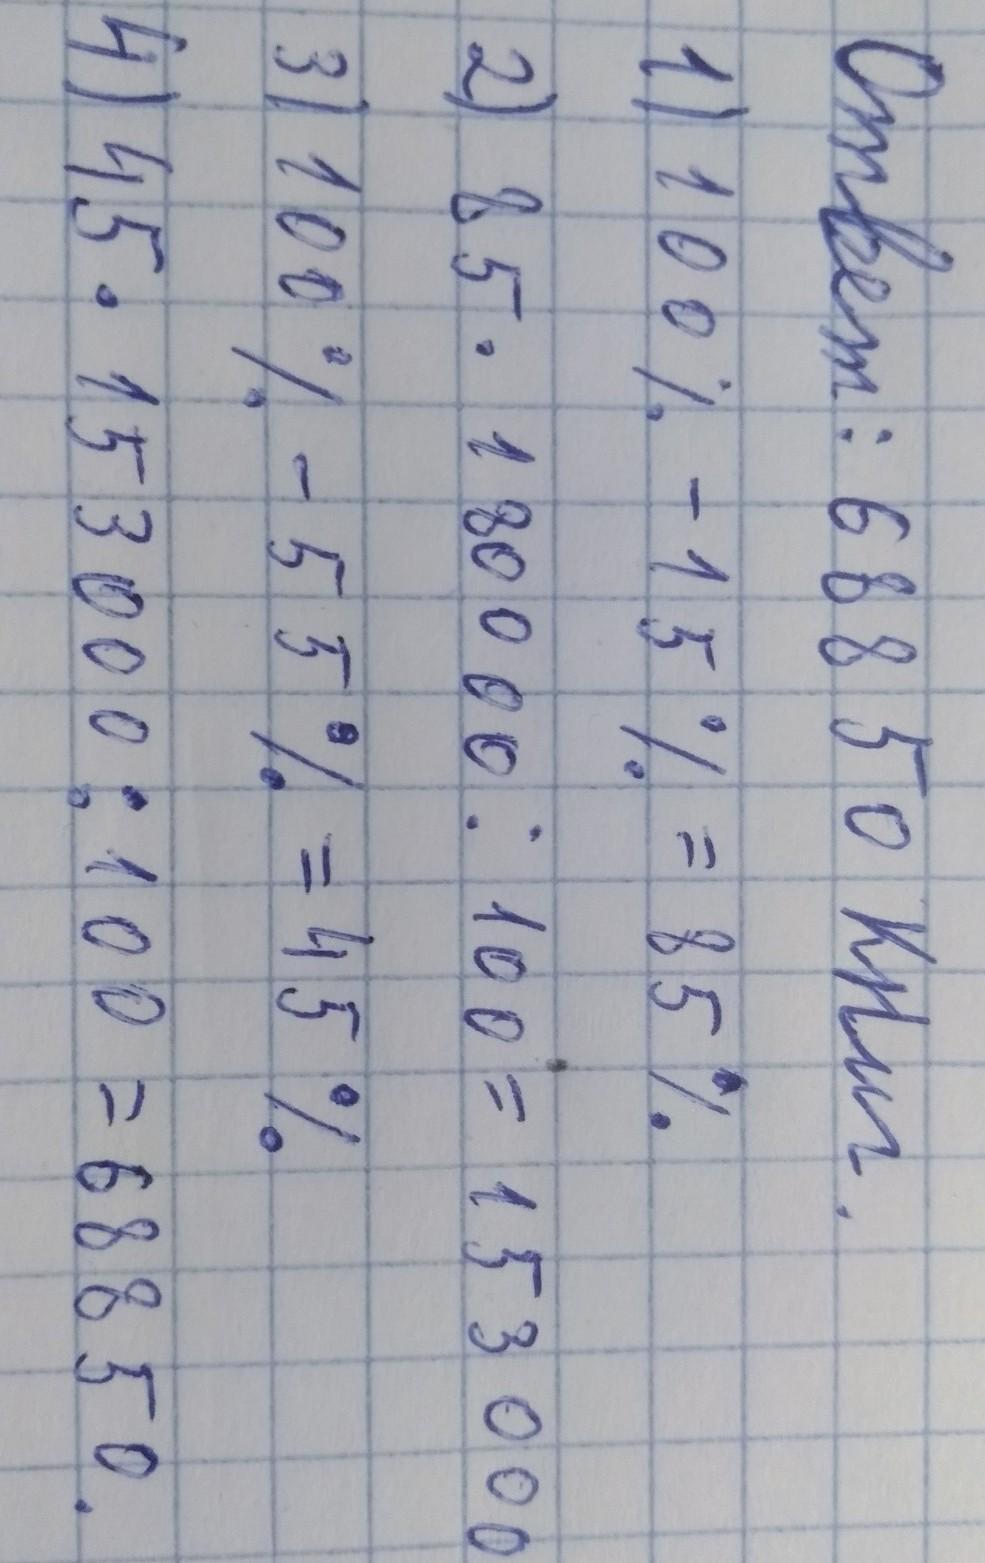 Ответ: 68850 книг.
1) 100% - 15% = 85%
2) 85 · 180000 : 100 = 153000
3) 100% - 55% = 45%
4) 45 · 153000 : 100 = 68850.